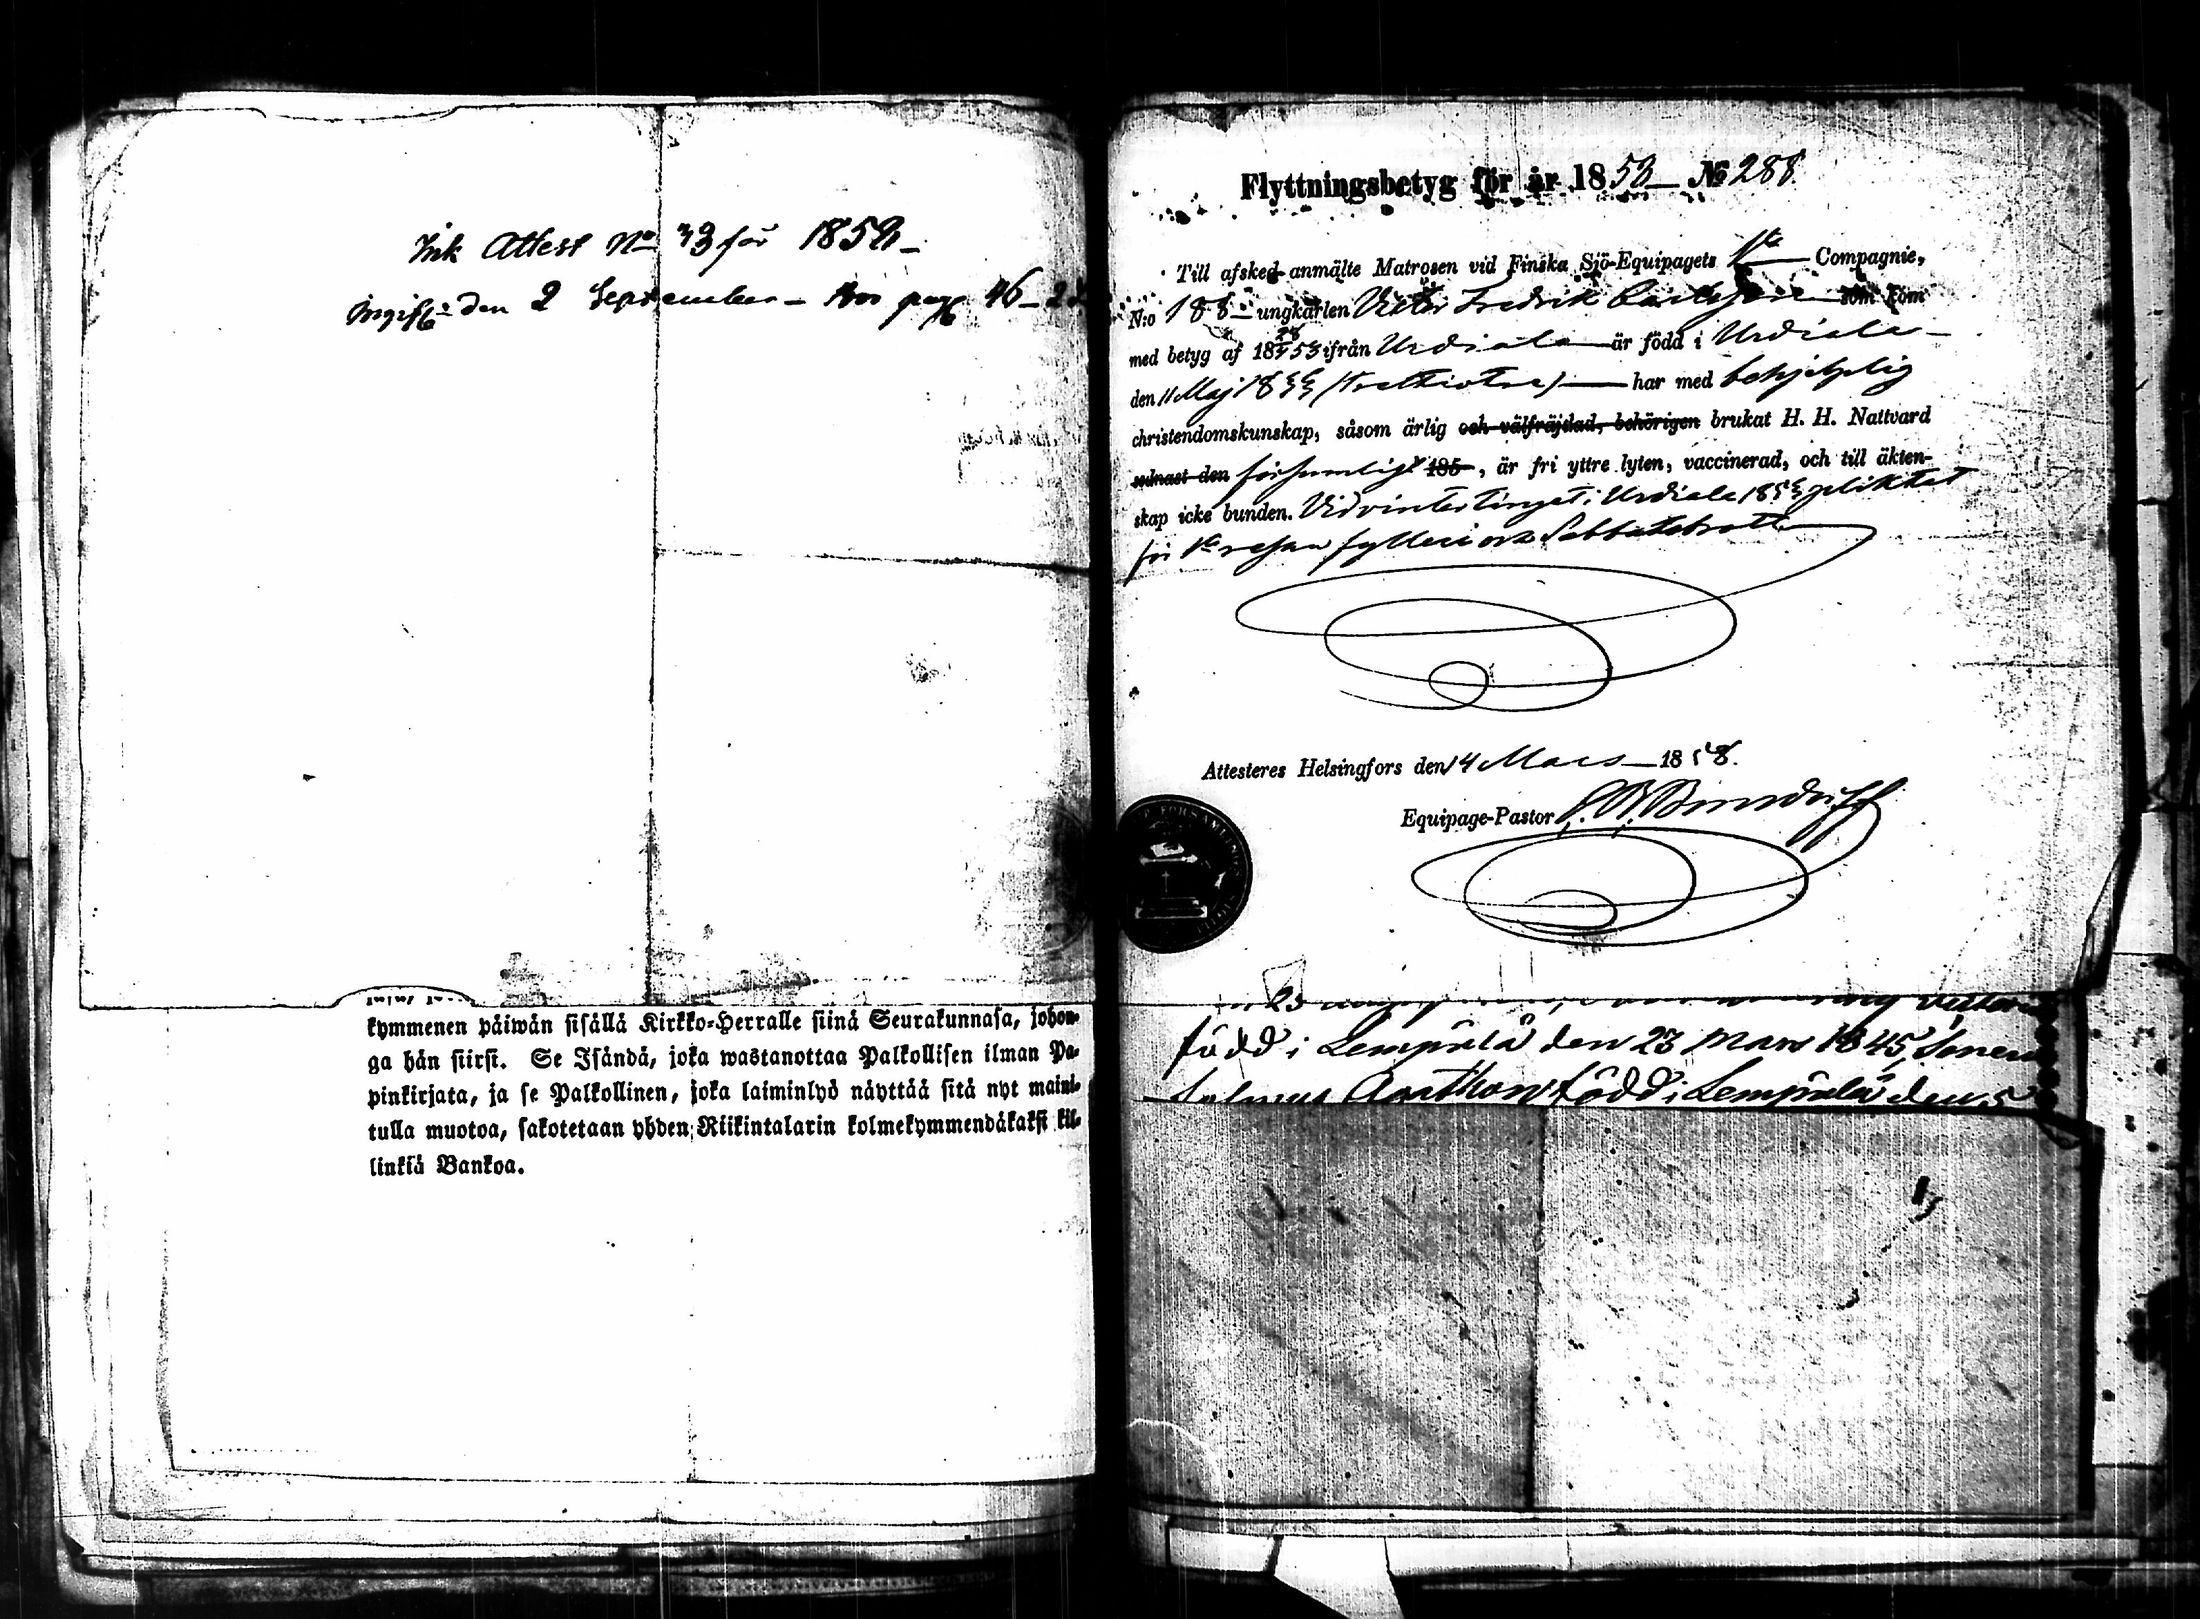 Ink Attest No 33 för 1859
Ingift: den 2 September pag 46
kymmenen päiwän sisällä Kirkko-Herralle siinä Seurakunnasa, johon-
ga hän siirsi. Se Isändä, joka wastanottaa Palkollisen ilman Pa-
pinkirjata, ja se Palkollinen, joka laiminlyö näyttää sitä nyt maini-
tulla muotoa, sakotetaan yhden Riikintalarin kolmekymmendäkaksi kil-
linkiä Bankoa.
Flyttningsbetyg för år 1858 No 288
Till afsked anmälte Matrosen vid Finska Sjö-Equipagets 1sta Compagnie,
N:o 188 ungkarlen Victor Fredrik Carlsson som kom
med betyg af 18 53 ifrån Urdiala är född i Urdiala
den 11 Maj 1833 (trettiotre) har med behjelplig
christendomskunskap, såsom ärlig och välfräjdad, behörigen brukat H. H. Nattvard
sednast den försumligt 185 , är fri yttre lyten, vaccinerad, och till äkten-
skap icke bunden. Vid vintertinget i Urdiala 1853 pliktat
för 1a resan fylleri och Sabbatsbrott
Attesteres Helsingfors den 14 Mars 1858.
Equipage-Pastor
född i Lempälä den 23 Mars 1845, Sonen
född i Lempälä den 5